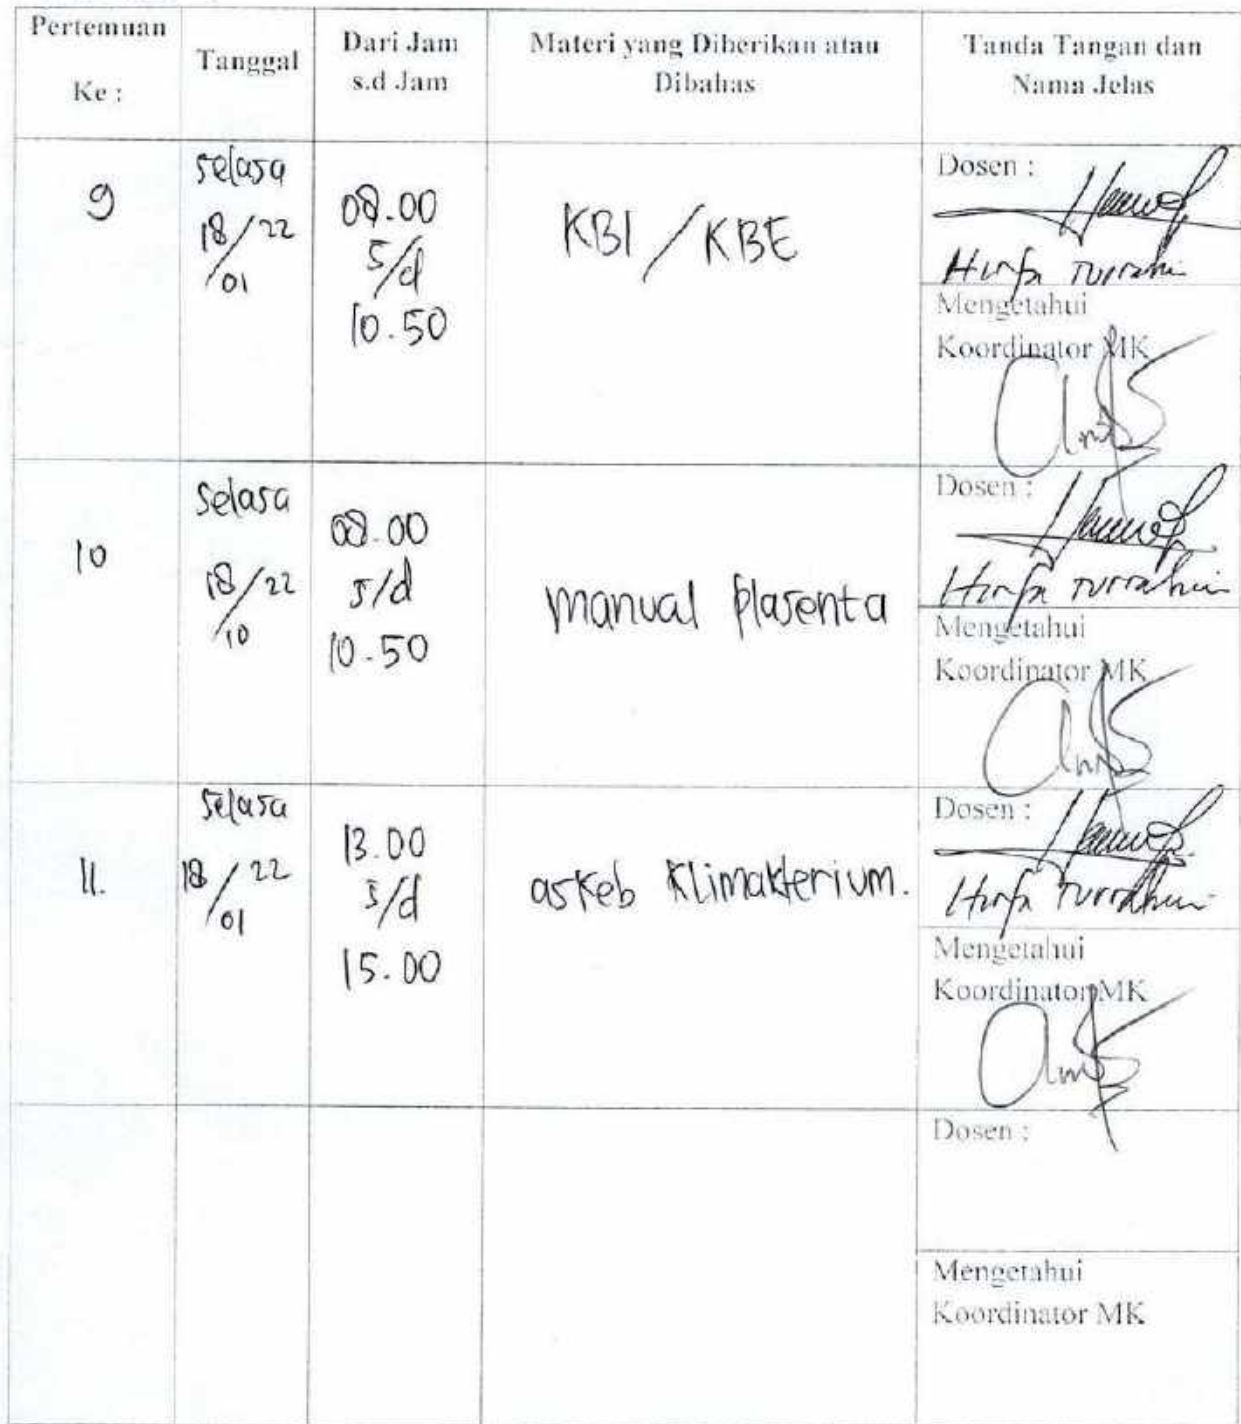 Pertemuan
Ke :
Tanggal
Dari Jam
s.d Jam
Materi yang Diberikan atau
Dibahas
Tanda Tangan dan
Nama Jelas
9
selasa
18/22
/01
08.00
s/d
10.50
KBI / KBE
Dosen :
Mengetahui
Koordinator MK
10
Selasa
18/22
/10
08.00
s/d
10.50
manual plasenta
Dosen :
Mengetahui
Koordinator MK
11.
Selasa
18/22
/01
13.00
s/d
15.00
askeb klimakterium.
Dosen :
Mengetahui
Koordinator MK
Dosen :
Mengetahui
Koordinator MK